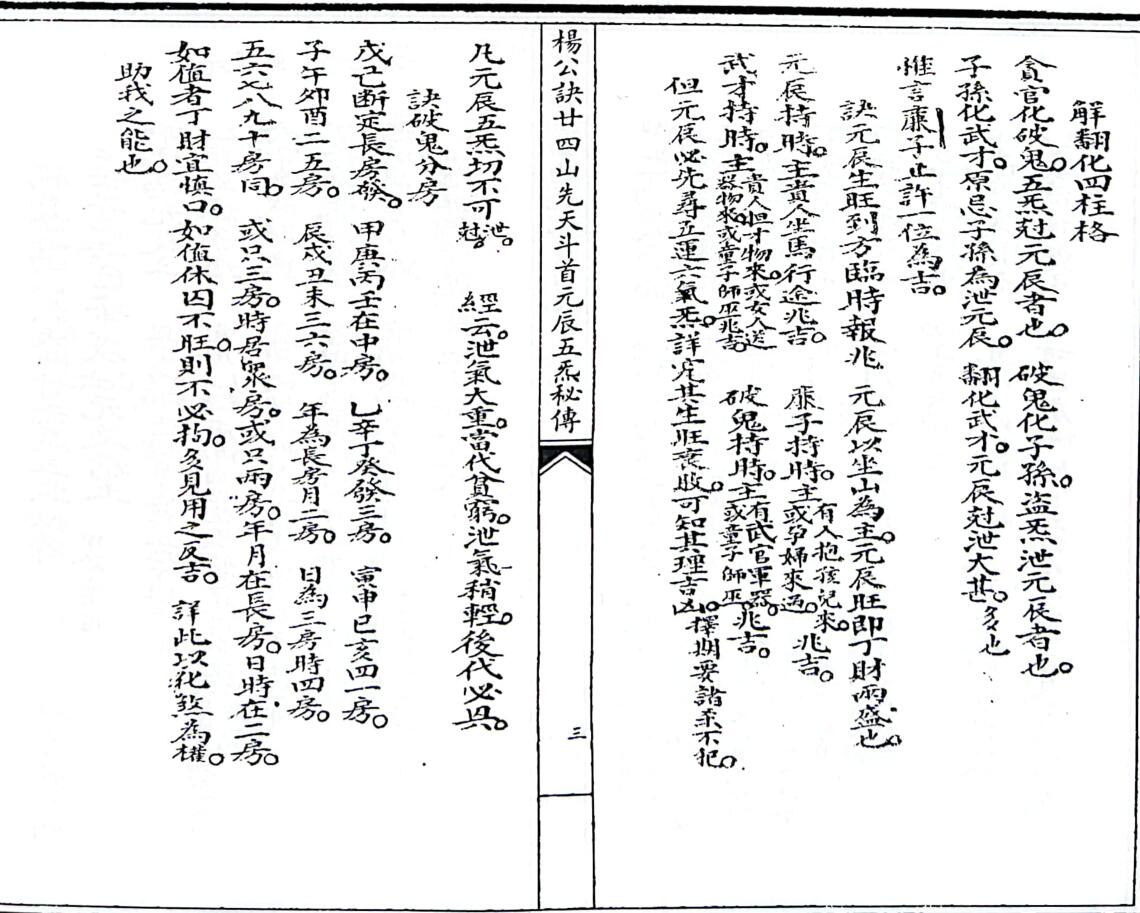 解翻化四柱格
貪官化破鬼。五炁尅元辰者也。 破鬼化子孫。盜炁泄元辰者也。
子孫化武才。原忌子孫為泄元辰。 翻化武才。元辰尅泄大甚。多也
惟言廉子止許一位為吉。
訣元辰生旺到方臨時報兆 元辰以坐山為主。元辰旺即丁財兩盛也。
元辰持時。主貴人坐馬行途兆吉。 廉子持時。主有人抱孩兒來。或孕婦來過。兆吉。
武才持時。主貴人担才物來。或女人送器物來或童子師巫兆吉。 破鬼持時。主有武官軍器。或童子師巫。兆吉。
但元辰必先尋五運六氣炁。詳究其生旺衰敗。可知其理吉凶。擇期要諸煞不犯。
楊公訣廿四山先天斗首元辰五炁秘傳
三
凡元辰五炁切不可泄。尅。 經云。泄氣大重。當代貧窮。泄氣稍輕。後代必興。
訣破鬼分房
戊己断定長房發。 甲庚丙壬在中房。 乙辛丁癸發三房。 寅申巳亥四一房。
子午卯酉二五房。 辰戌丑未三六房。 年為長房月二房。 日為三房時四房。
五六七八九十房同。 或只三房。時居眾房。或只兩房。年月在長房。日時在二房。
如值者丁財宜慎口。如值休囚不旺。則不必拘。多見用之反吉。 詳此以化煞為權。
助我之能也。